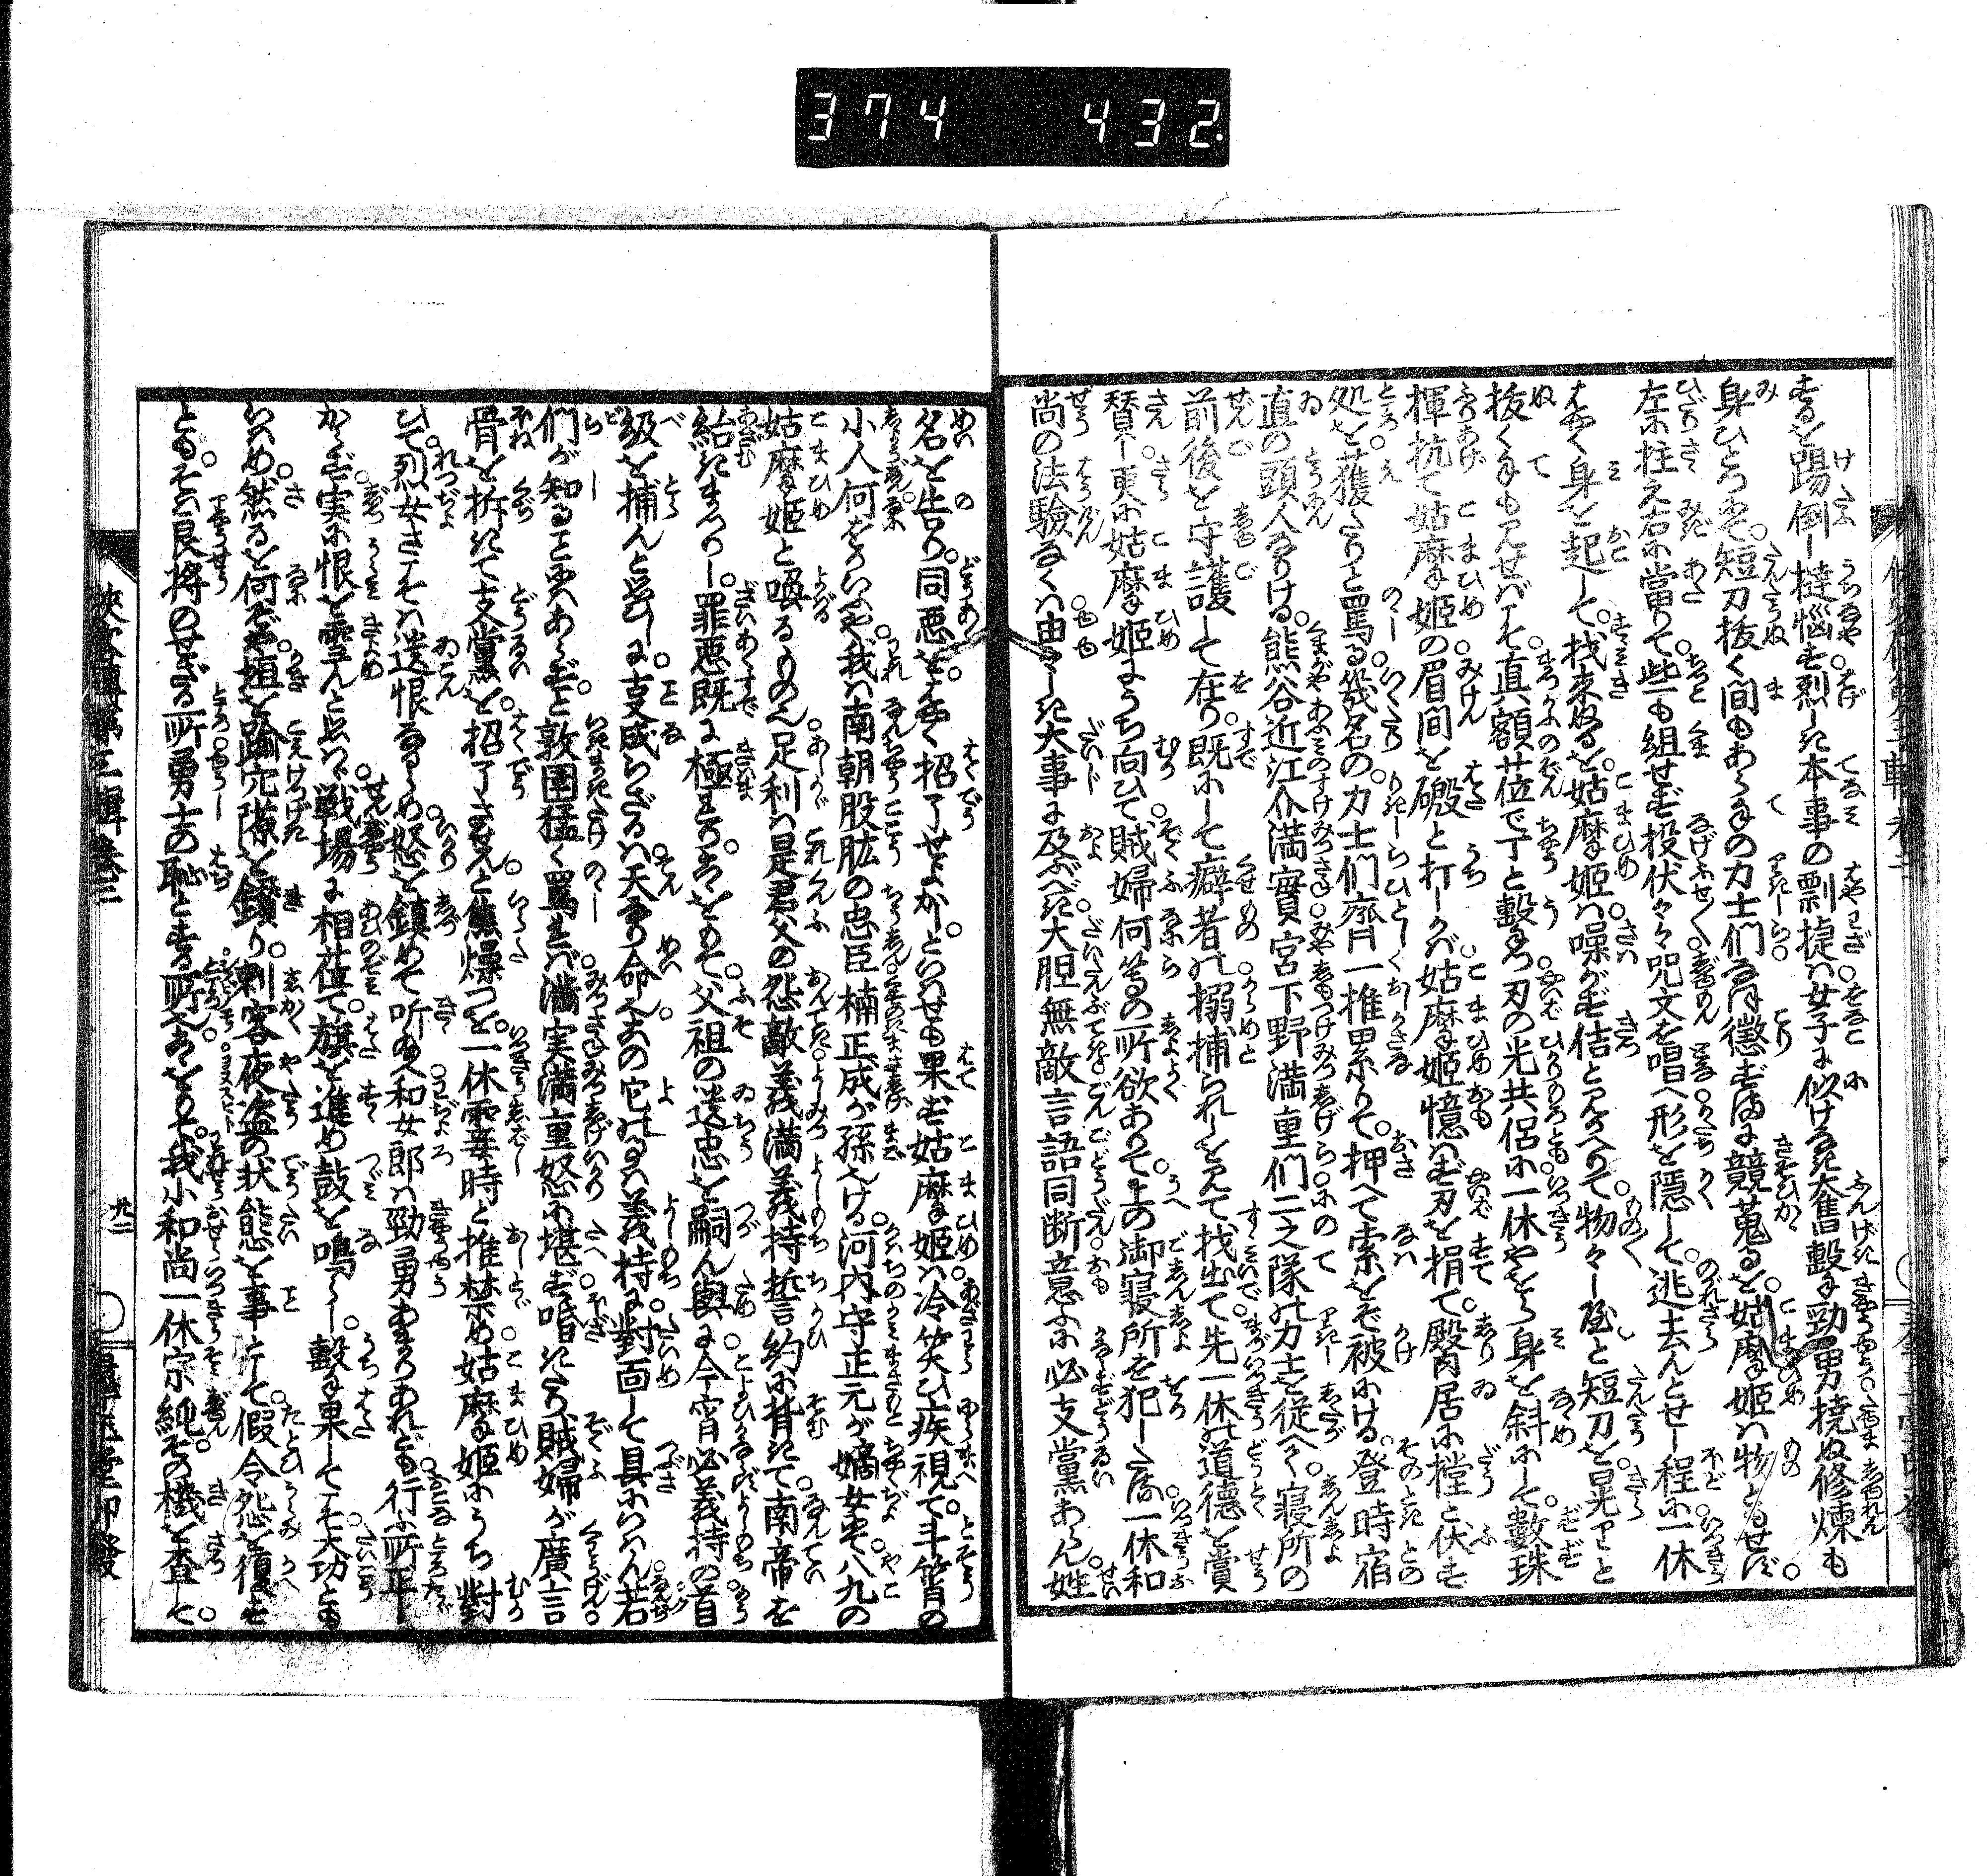 374 432.
するを踢倒し撻惱す烈しき本事の剽捷は女子に似げなき奮擊勁勇撓ぬ修煉も
身ひとつにて短刀拔く間もあらねの力士們なほ懲ずまに競蒐るを姑摩姫は物ともせず
左に柱え右に當りて些も組せず投伏々々咒文を唱へ形を隱して逃去んとせし程に一休
はやく身を起して找來ぬるを姑摩姫は噪がず佶と見かへりて物々しやと短刀を晃りと
拔く手も見せばこそ直額㘴位で丁と擊つ刃の光共侶に一休やをら身を斜にして數珠
揮抗て姑摩姫の眉間を礑と打しかば姑摩姫憶はず刃を捐て殿𡱖居に摚と伏す
処を獲たりと罵る幾名の力士們齊一推累りて押へて索をぞ被にける登時宿
直の頭人なりける熊谷近江介満實宮下野満重們二之隊の力士を從へて寢所の
前後を守護して在り既にして癖者の搦捕られしを見て找出て先一休の道德を賞
賛し更に姑摩姫にうち向ひて賊婦何等の所欲ありて上の御寢所を犯したる一休和
尚の法驗なくは由々しき大事に及ぶべき大胆無敵言語同断意ふに必支黨あらん姓
名を告り同悪を佷く招了せよかしといはせも果ず姑摩姫は冷笑ひ疾視て斗筲の
小人何をかいふや我は南朝股肱の忠臣楠正成が孫なりける河内守正元が嫡女にて八九の
姑摩姫と喚るゝものなり足利は是君父の怨敵義満義持誓約に背きて南帝を
紿きまゐらし罪悪既に極まれりこゝをもて父祖の遺忠を嗣ん與に今宵必義持の首
級を捕んと思ひしに支成らざるは天なり命なり去の它此るは義持に對面して具にいはん若
們が知ることにはあらずと敦圉猛く罵れば満実満重怒に堪ず喑きたり賊婦が廣言
骨を拆きて支黨を招了させんと焦燥つを一休霎時と推禁め姑摩姫にうち對
ひて烈女さこそは遺恨ならめ怒を鎮めて听ね和女郎は勁勇あまりあれども行ふ所正し
からず実に恨を雪んと思はゞ戦場に相莅て旗を進め鼓を鳴らし擊も果してこそ大功とも
いはめ然るを何ぞや垣を踰穴隙を鑽り刺客夜盜の状態を事として假令怨を復せ
ともそは艮將のせざる所勇士の恥とする所なりこゝをもて我小和尚一休宗純その機を查して
俠客傳第三輯卷三
九二